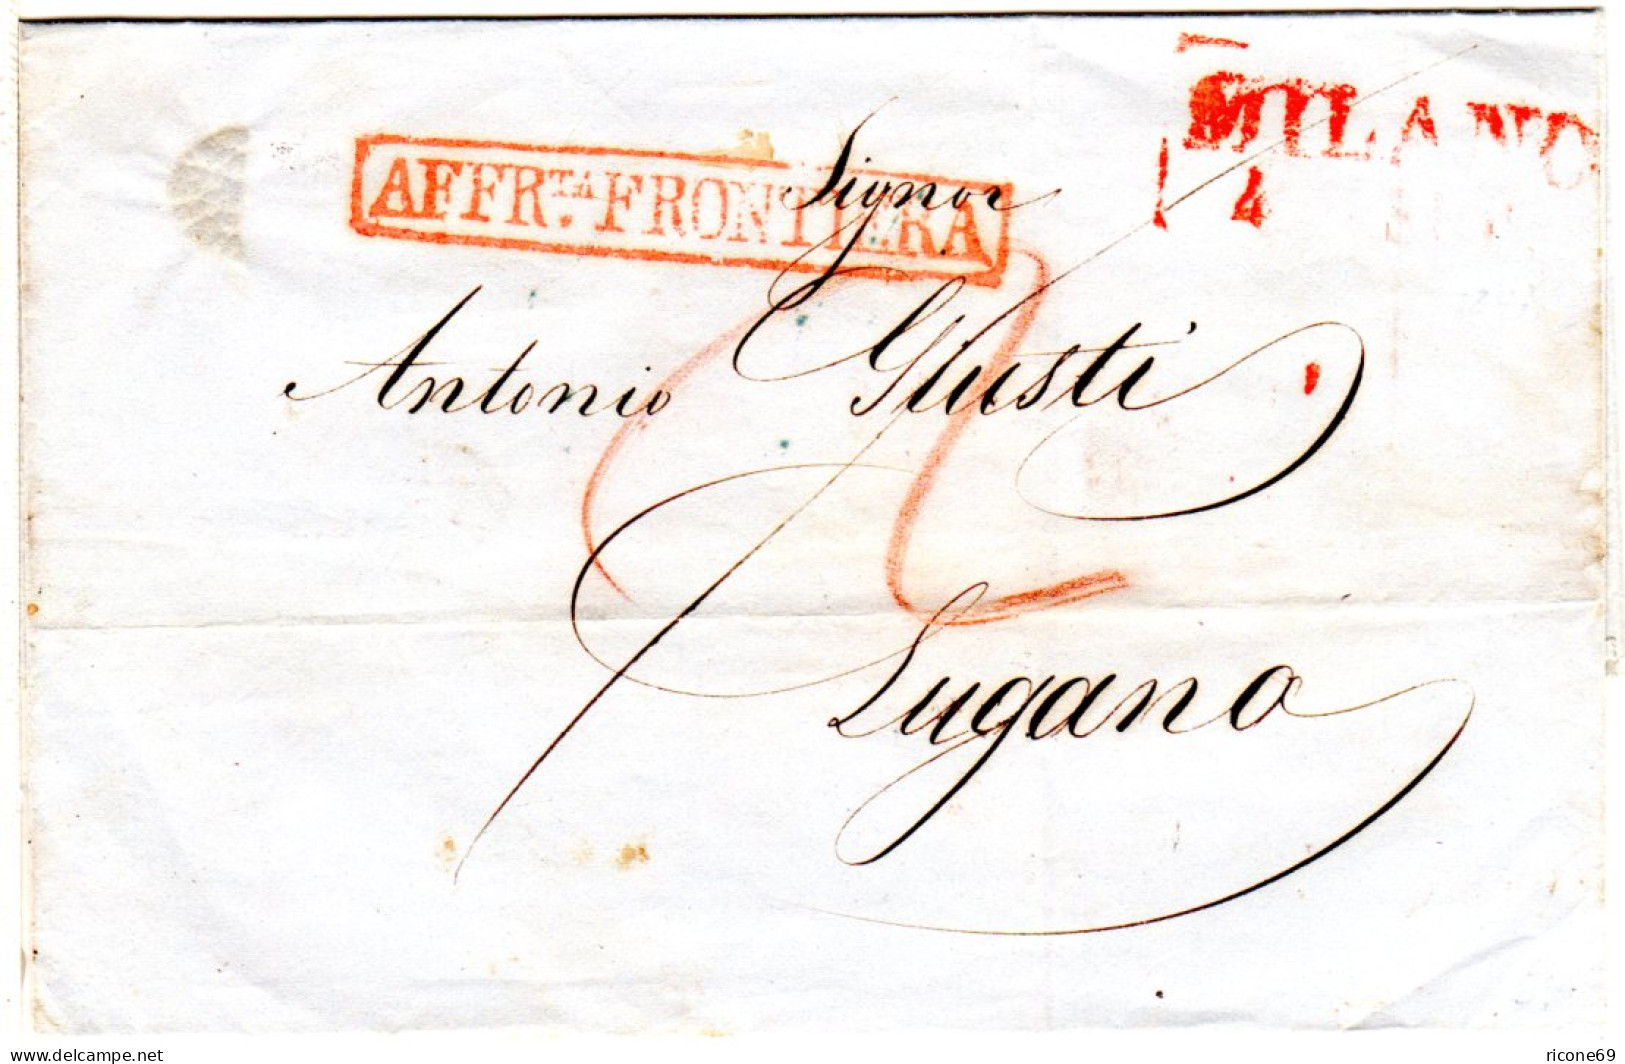 MILANO
4
AFFR.TA FRONTIERA
Signor
Antonio Giusti
Lugano
www.delcampe.net
ricone69